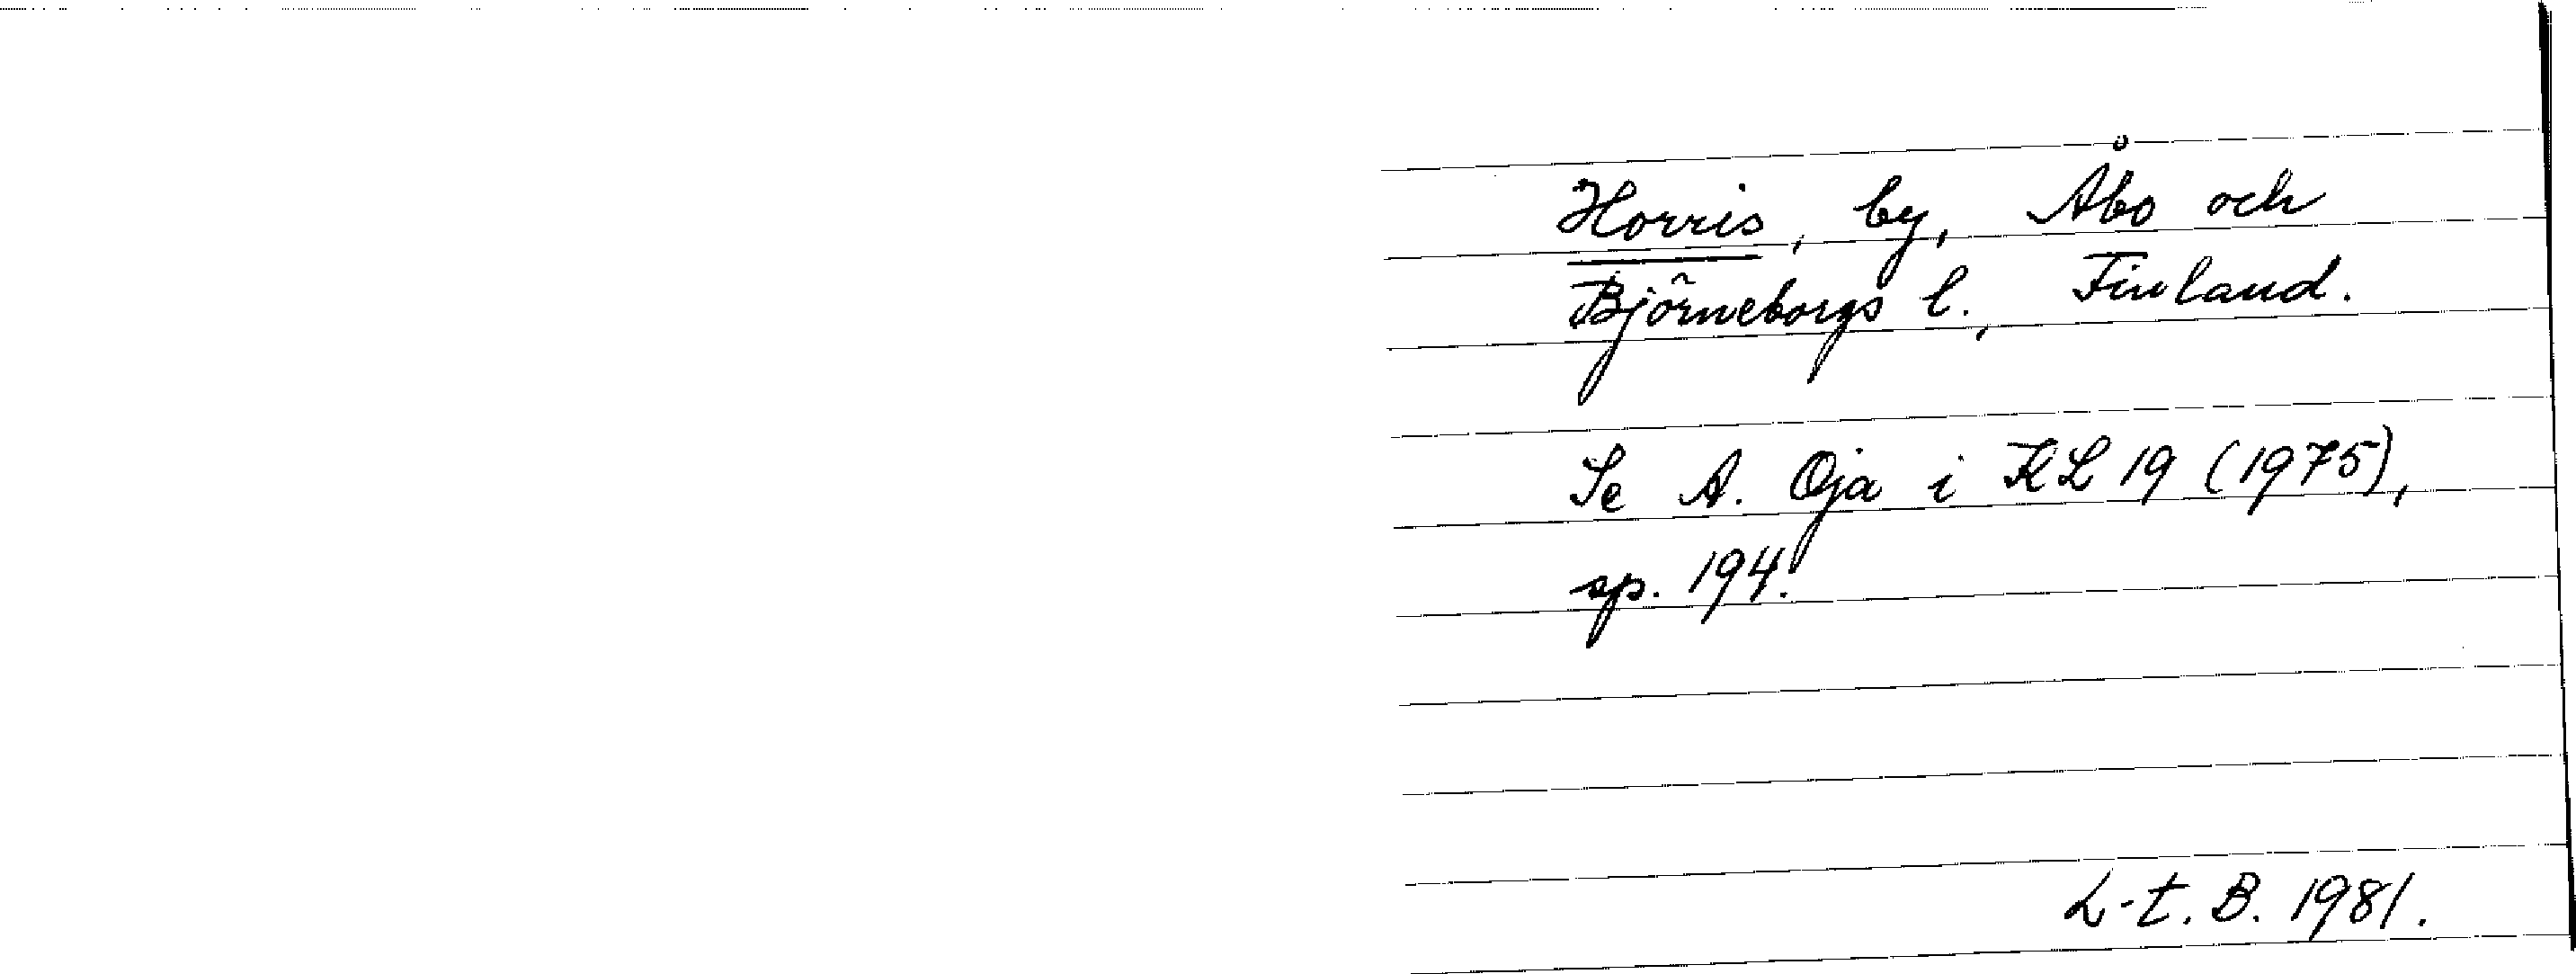 Horris, by, Åbo och
Björneborgs l., Finland.
Se A. Oja i KL 19 (1975),
sp. 194.
L-t. B. 1981.